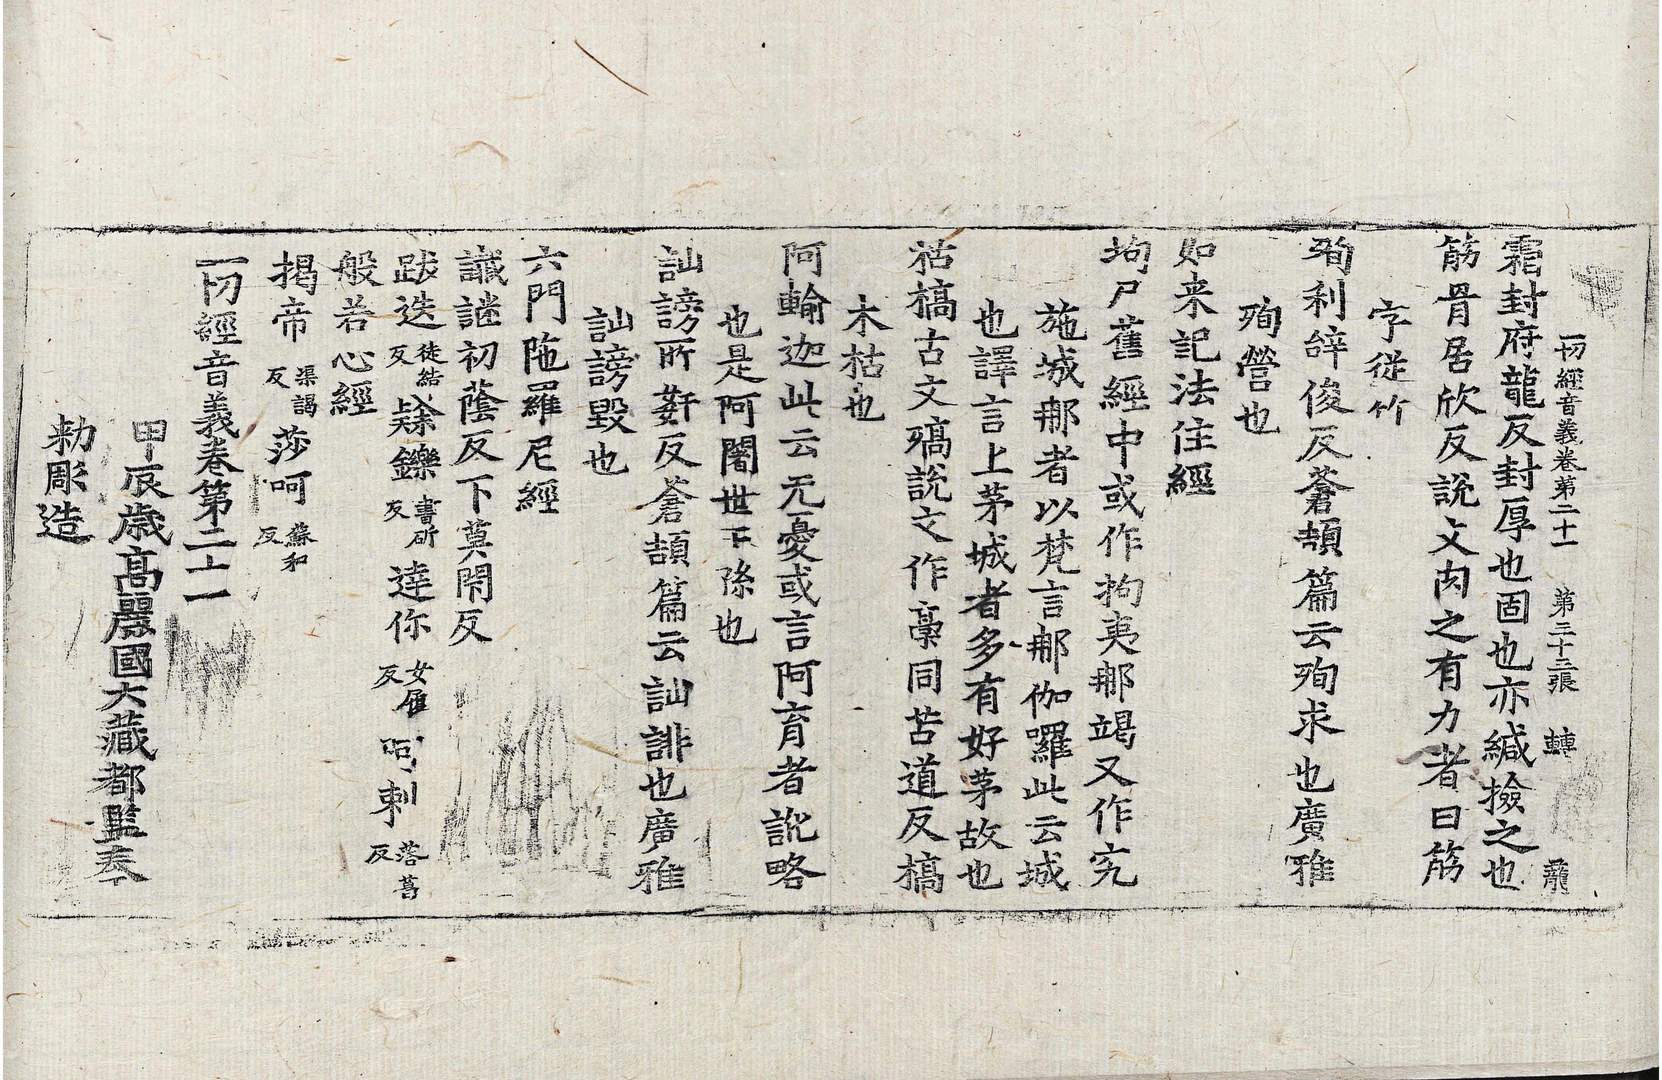 一切經音義卷第二十一 第三十三張 轉 龍
霜封府龍反封厚也固也亦緘撿之也
筋骨居欣反說文肉之有力者曰筋
字從竹
殉利辞俊反蒼頡篇云殉求也廣雅
殉營也
如来記法住經
拘尸舊經中或作拘夷那竭又作究
施城那者以梵言那伽囉此云城
也譯言上茅城者多有好茅故也
枯槁古文殦說文作槀同苦道反槁
木枯也
阿輸迦此云无憂或言阿育者訛略
也是阿闍世王孫也
訕謗所姧反蒼頡篇云訕誹也廣雅
訕謗毀也
六門陁羅尼經
讖謎初蔭反下莫閇反
跋迭徒結反 鑠書斫反 達你女履反 呬剌落葛反
般若心經
揭帝渠謁反 莎呵蘇和反
一切經音義卷第二十一
甲辰歲高麗國大藏都監奉
勑彫造